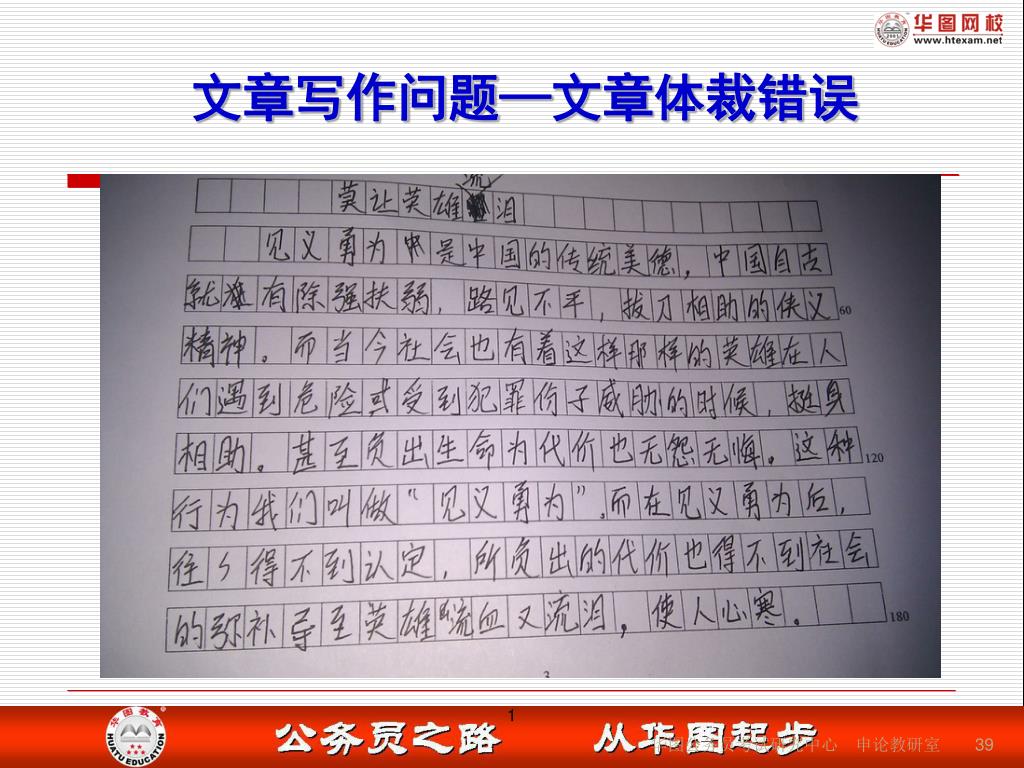 华图网校
www.htexam.net
文章写作问题—文章体裁错误
流
莫让英雄泪
见义勇为中是中国的传统美德，中国自古
就有除强扶弱，路见不平，拔刀相助的侠义
60
精神。而当今社会也有着这样那样的英雄在人
们遇到危险或受到犯罪份子威胁的时候，挺身
相助。甚至负出生命为代价也无怨无悔。这种
120
行为我们叫做“见义勇为”。而在见义勇为后，
往々得不到认定，所负出的代价也得不到社会
的弥补导至英雄流血又流泪，使人心寒。
180
3
华图教育
HUATU EDUCATION
1
公务员之路 从华图起步
申论教研室
39